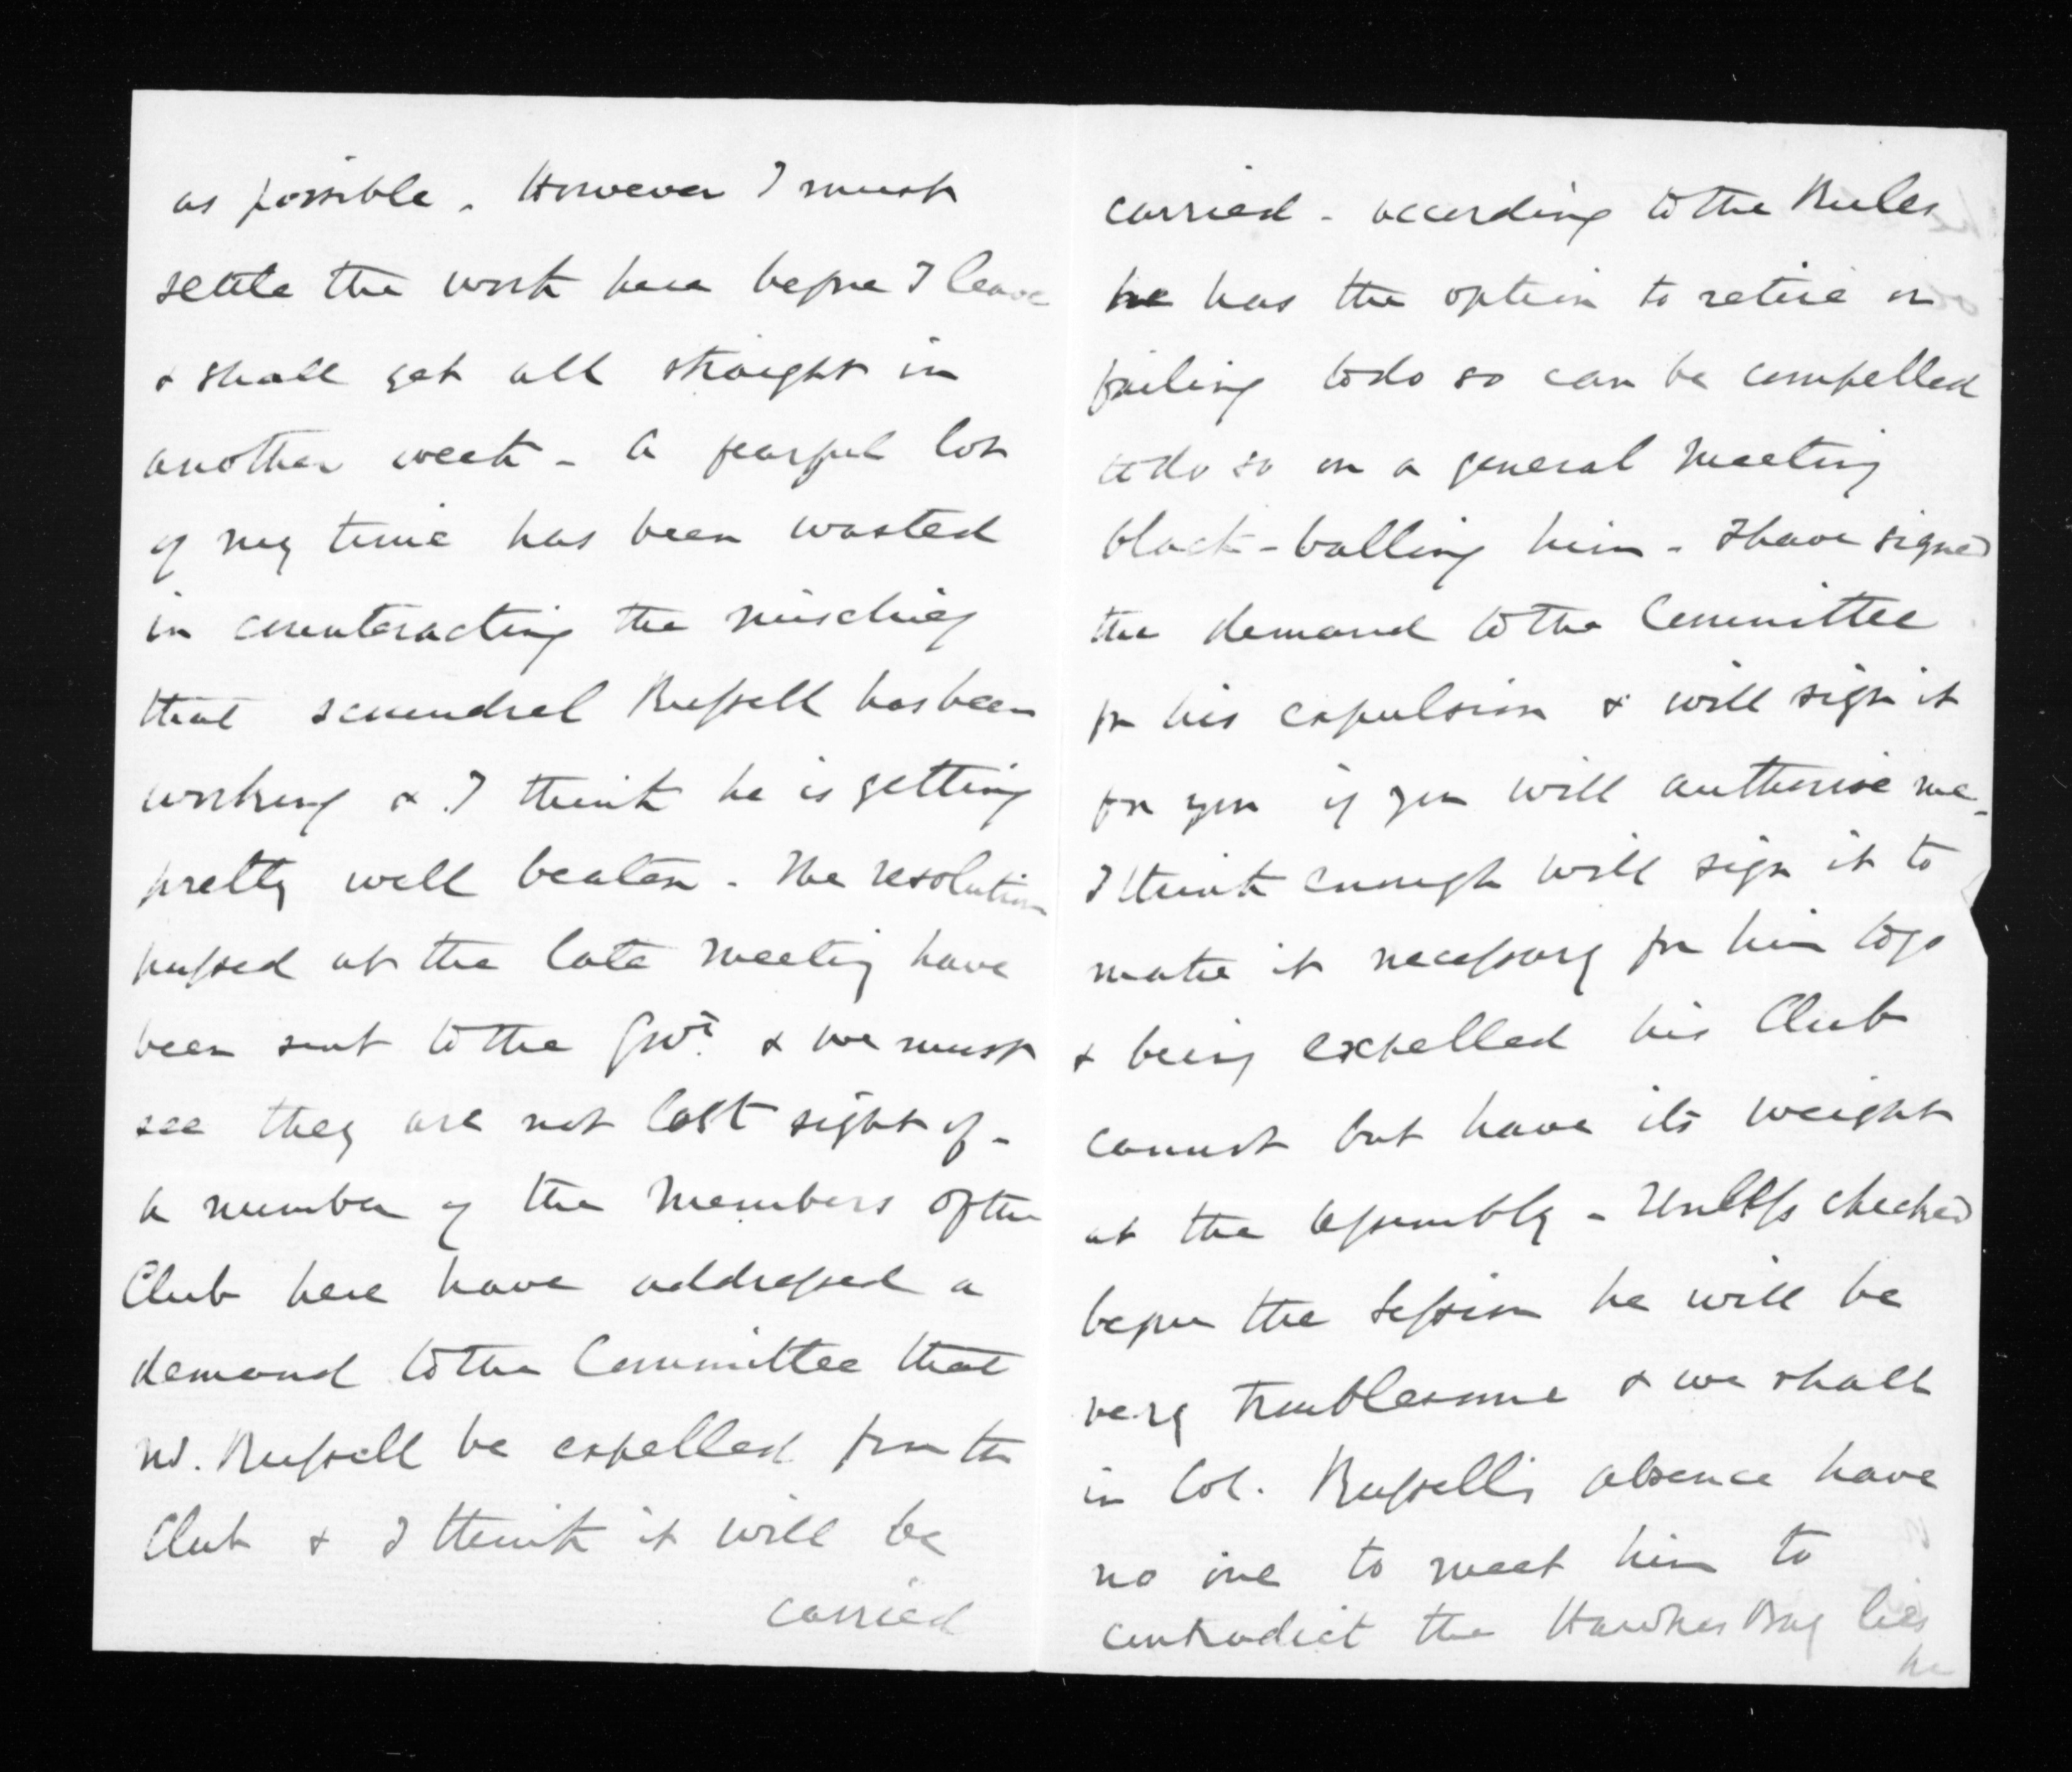 as possible. However I must
settle the work here before I leave
& shall get all straight in
another week - A fearful lot
of my time has been wasted
in counteracting the mischief
that scoundrel Russell has been
working & I think he is getting
pretty well beaten. The resolution
passed at the late Meeting have
been sent to the Govt. & we must
see they are not lost sight of -
A number of the Members of the
Club here have addressed a
demand to the Committee that
H. Russell be expelled from the
Club & I think it will be
carried
carried - according to the Rules
he has the option to retire or
failing to do so can be compelled
to do so on a general Meeting
black-balling him - I have signed
the demand to the Committee
for his expulsion & will sign it
for you if you will authorise me -
I think enough will sign it to
make it necessary for him to go
& being expelled his Club
cannot but have its weight
at the Assembly - Unless checked
before the Session he will be
very troublesome & we shall
in Col. Russell's absence have
no one to meet him to
contradict the Hawkes Bay lies
he